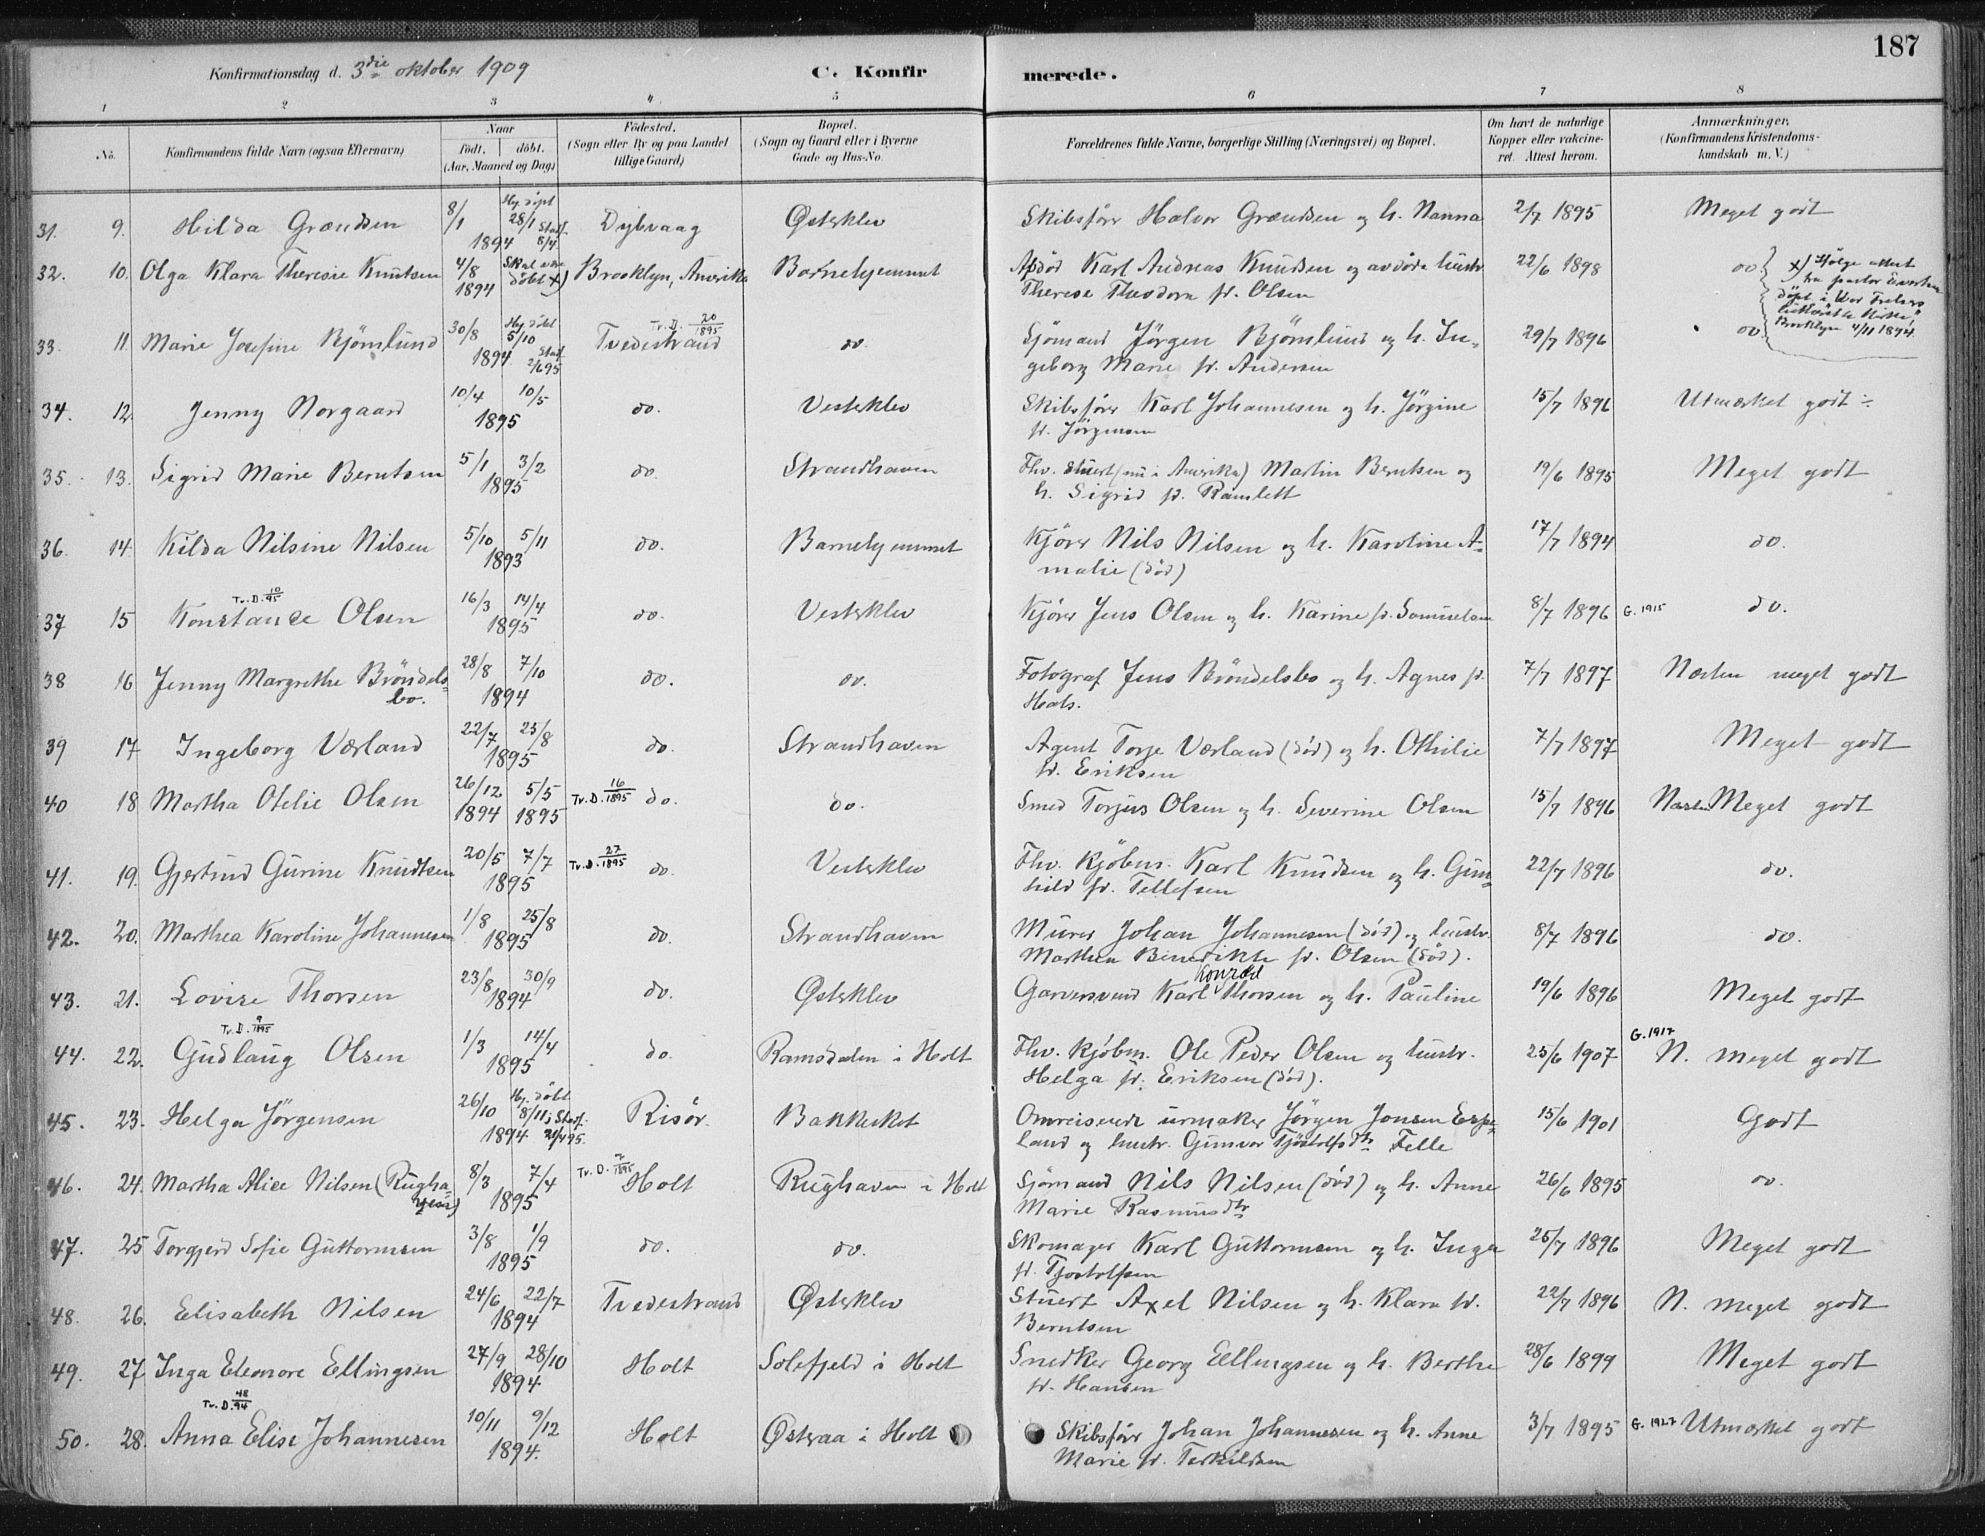 187
Konfirmationsdag d. 3die oktober 1909 C. Konfirmerede.
1 2 3 4 5 6 7 8
No. Konfirmandens fulde Navn (ogsaa Efternavn) Naar født, døbt. (Aar, Maaned og Dag) Fødested. (Sogn eller By og paa Landet tillige Gaard) Bopæl. (Sogn og Gaard eller i Byerne Gade og Hus-No. Forældrenes fulde Navne, borgerlige Stilling (Næringsvei) og Bopæl. Om havt de naturlige Kopper eller vakcineret. Attest herom. Anmærkninger. (Konfirmandens Kristendomskundskab m. V.)
31. 9. Hilda Grændsen 8/1 1894 Hj. döpt 28/1 Stadf. 8/4. Dybvaag Østeklev Skibsförer Halvor Grændsen og h. Nanna 2/7 1895 Meget godt
32. 10. Olga Klara Theresie Knutsen 4/8 1894 Skal være döbt x) Brooklyn, Amerika Barnehjemmet Afdöd Karl Andreas Knudsen og avdöde hustr.
Therese Theodora f. Olsen 22/6 1898 do. x) Ifölge attest fra pastor
döpt i Vor Frelsers
Brooklyn 4/11 1894.
33. 11. Marie Josefine Björnlund 30/8 1894 Hj. döbt 5/10 Stadf. 2/6 95 Tv. D. 20/1895 Tvedestrand do. Sjömand Jörgen Björnlund og h. In-
geborg Marie f. Andersen 29/7 1896 do.
34. 12. Jenny Norgaard 10/4 10/5 1895 do. Vesteklev Skibsförer Karl Johannesen og h. Jörgine
f. Jörgensen 15/7 1896 Utmerket godt
35. 13. Sigrid Marie Berntsen 5/1 3/2 1895 do. Strandhaven Fhv. stuert (nu i Amerika) Martin Berntsen og
h. Sigrid f. Ramlett 19/6 1895 Meget godt
36. 14. Kilda Nilsine Nilsen 5/10 5/11 1893 do. Barnehjemmet Kjörer Nils Nilsen og h. Karoline A-
malie (död) 17/7 1894 do.
Tv. D. 10/95
37 15 Konstance Olsen 16/3 14/4 1895 do. Vesteklev Kjörer Jens Olsen og h. Karine f. Samuelsen 8/7 1896 G. 1915 do.
38 16 Jenny Margrethe Bröndels-
bo. 28/8 7/10 1894 do. do. Fotograf Jens Bröndelsbo og h. Agnes f.
Hals. 7/7 1897 Næsten meget godt
39 17 Ingeborg Værland 22/7 25/8 1895 do. Strandhaven Agent Torje Værland (död) og h. Othilie
f. Eriksen 7/7 1897 Meget godt
40 18 Martha Otelie Olsen 26/12 1894 5/5 1895 Tv. D. 16/1895 do. do. Smed Torjus Olsen og h. Severine Olsen 15/7 1896 Næsten Meget godt
41. 19. Gjertrud Gurine Knudtsen 20/5 7/7 1895 Tv. D. 27/1895 do. Vesteklev Fhv. kjöbm. Karl Knudsen og h. Gun-
hild f. Tellefsen 22/7 1896 do.
42. 20. Marthea Karoline Johannesen 1/8 25/8 1895 do. Strandhaven Murer Johan Johannesen (död) og hustr.
Marthea Benedikte f. Olsen (död). 8/7 1896 do.
43. 21. Lovise Thorsen 23/8 30/9 1894 do. Østeklev Garversvend Karl Konrad Thorsen og h. Pauline 19/6 1896 Meget godt
Tv. D. 9/1895
44. 22. Gudlaug Olsen 1/3 14/4 1895 do. Ramsdalen i Holt Fhv. kjöbm. Ole Peder Olsen og hustr.
Helga f. Eriksen (död). 25/6 1907 G. 1917 N. meget godt
45. 23. Helga Jörgensen 26/10 1894 Hj. döbt 8/11 Stadf. 21/4 95. Risör. Bakkeskot Omreisende urmaker Jörgen Jonsen Espe-
land og hustr. Gunvor Tjöstolfsdtr Felle 15/6 1901 Godt
46. 24. Martha Alice Nilsen (Rugha-
ven) 8/3 7/4 1895 Tv. D. 7/1895 Holt Rughaven i Holt Sjömand Nils Nilsen (död) og h. Anne
Marie Rasmusdtr 26/6 1895 do.
47. 25 Torgjerd Sofie Guttormsen 3/8 1/9 1895 do. do. Skomager Karl Guttormsen og h. Inga
f. Tjostolfsen 25/7 1896 Meget godt
48. 26. Elisabeth Nilsen 24/6 22/7 1894 Tvedestrand Østeklev Stuert Axel Nilsen og h. Klara f.
Berntsen 22/7 1896 N. meget godt
49. 27 Inga Eleonore Ellingsen 27/9 28/10 1894 Holt Solefjeld i Holt Snedker Georg Ellingsen og h. Berthe
f. Hansen 28/6 1899 Meget godt
Tv. D. 48/94
50. 28. Anna Elise Johannesen 10/11 9/12 1894. Holt Østeraa i Holt Skibsförer Johan Johannesen og h. Anne
Marie f. Terkildsen 3/7 1895 G. 1927 Utmerket godt